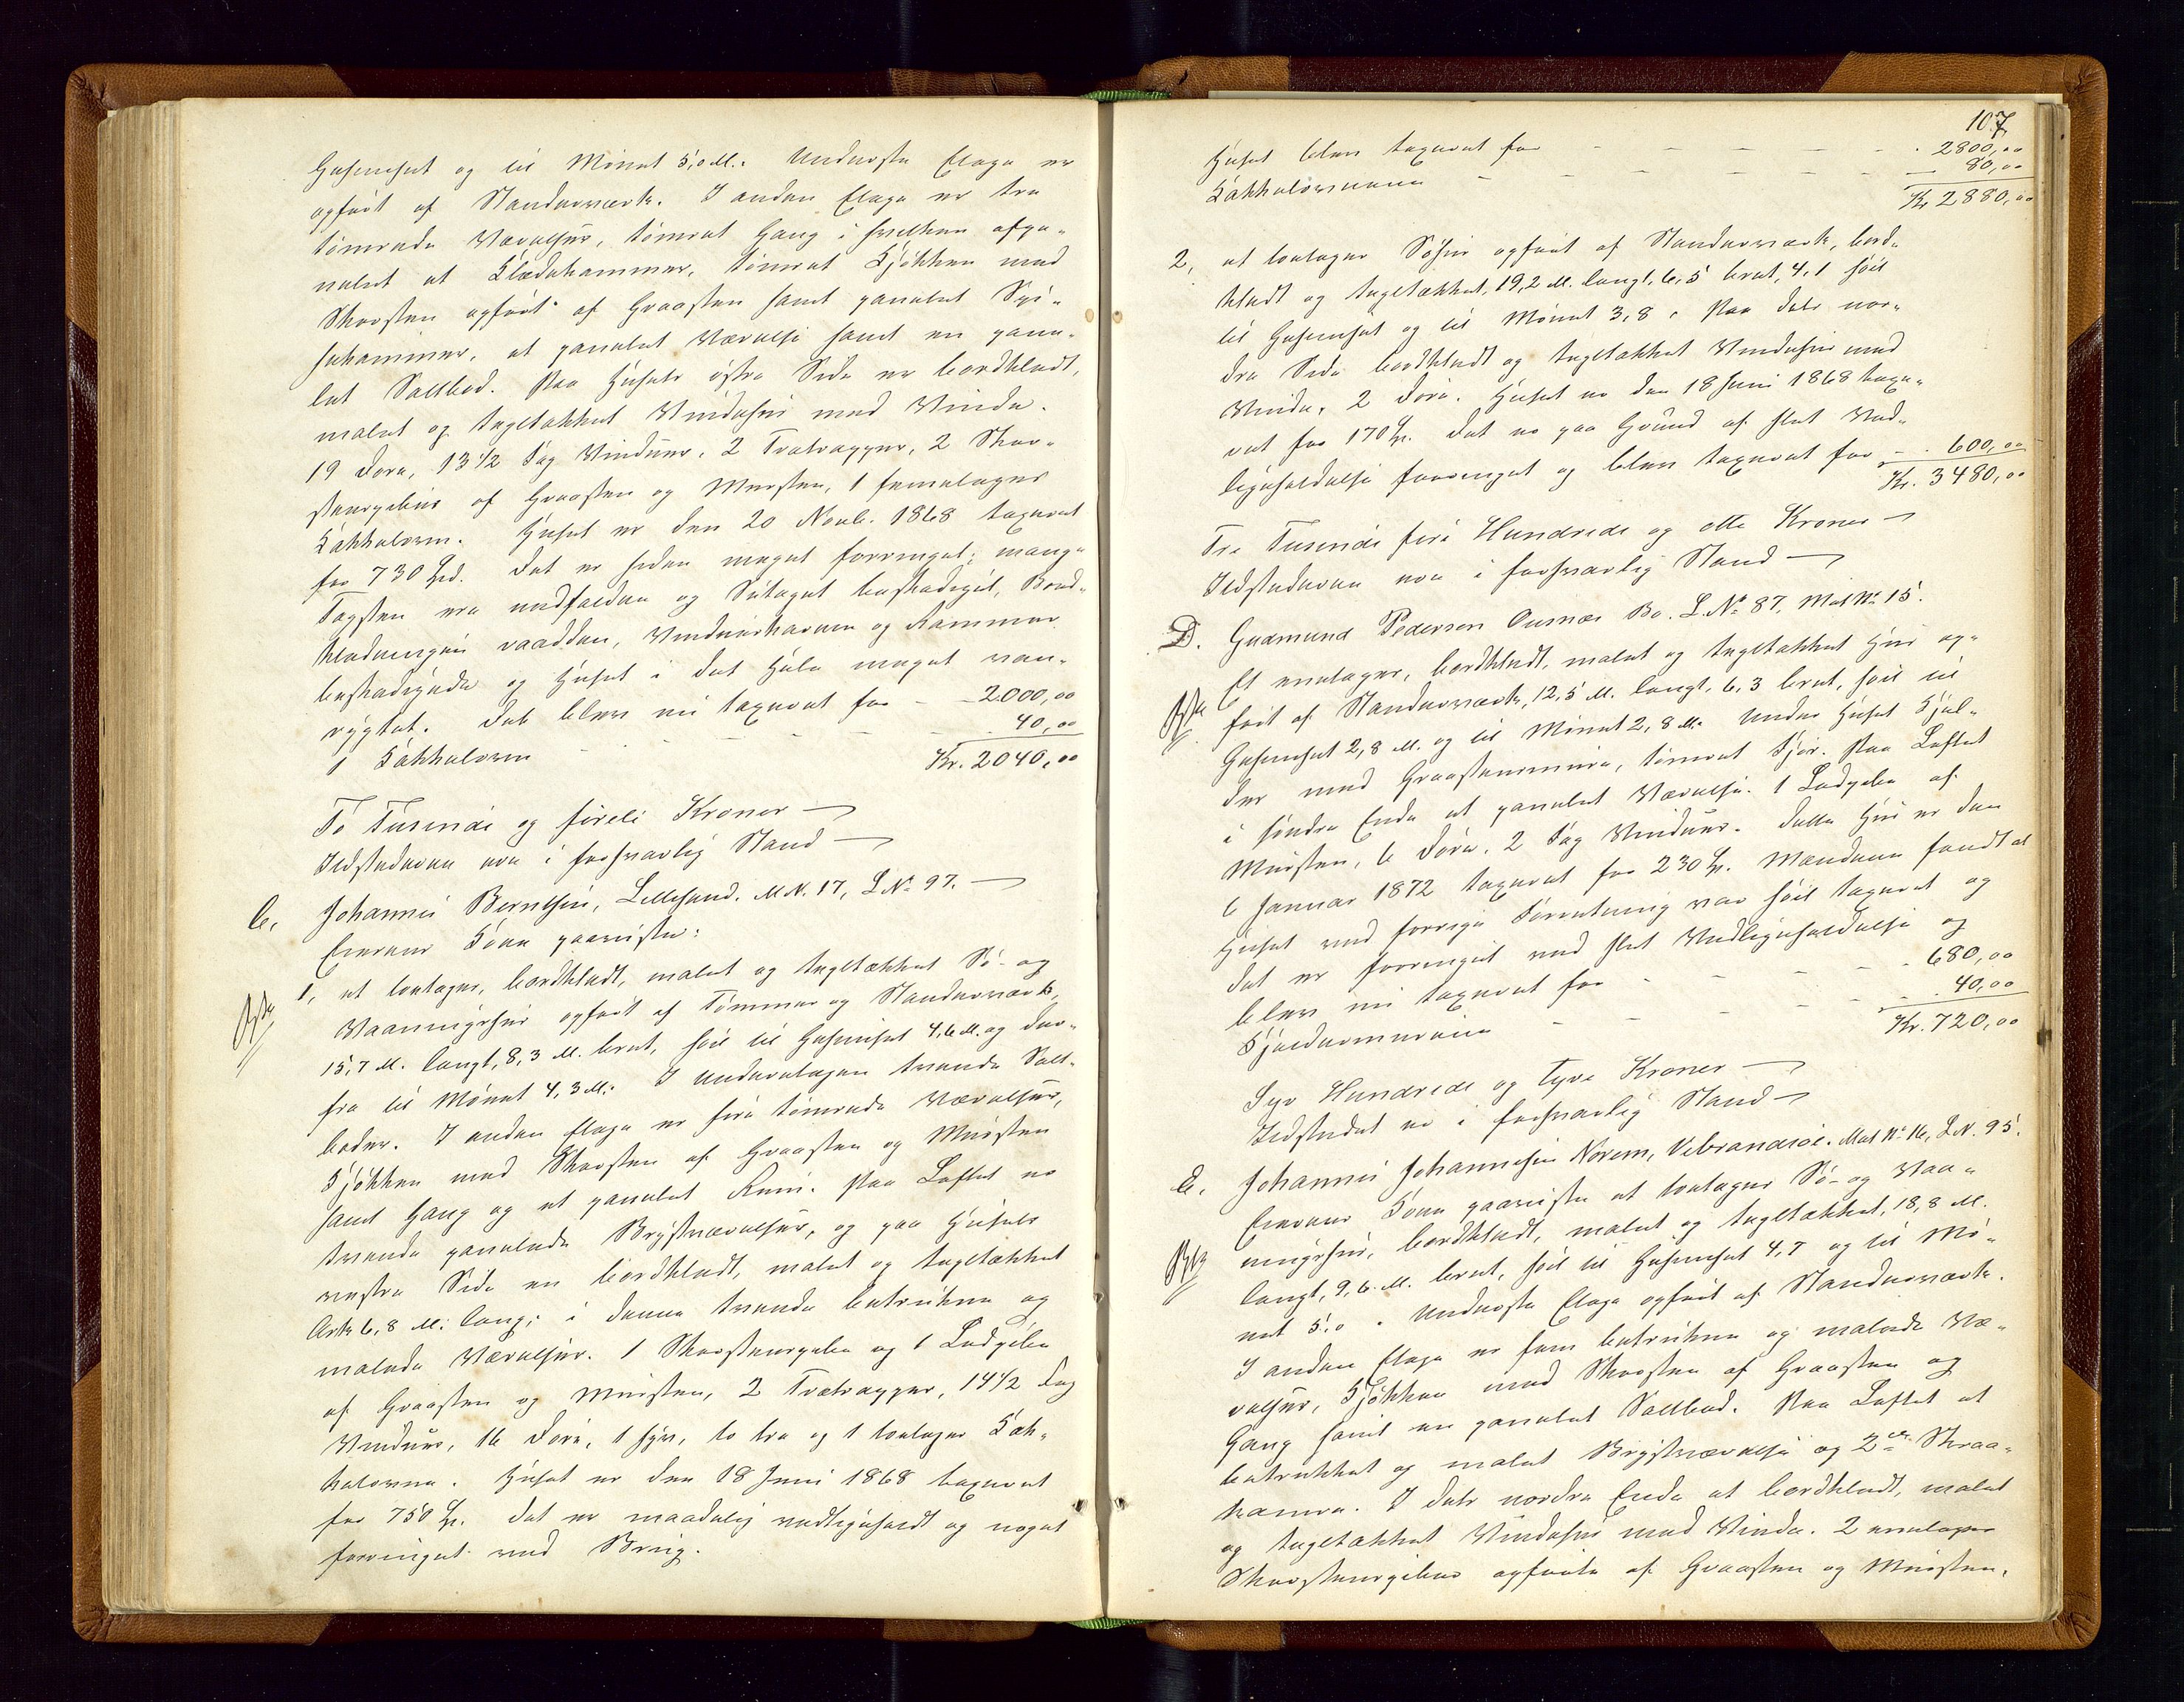 Gesimset og til Mønet 5,0 M. Underste Etage er
opført af Standerværk. I anden Etage er tre
tømrede Værelser, tømret Gang i hvilken afpa-
nelet et Klædekammer, tømret Kjøkken med
Skorsten opført af Graasten samt panelet Spi-
sekammer, et panelet Værelse samt en pane-
let Saltbod. Paa Husets østre Side er bordklædt,
malet og tegltækket Vindehus med Vinde.
19 Døre, 13 1/2 Fag Vinduer, 2 Trætrapper, 2 Skor-
stenspiber af Graasten og Mursten, 1 femetages
Kakkelovn. Huset er den 20 Novb. 1868 taxeret
for 730 Spd. Det er siden meget forringet; mange
Tagsten ere nedfaldne og Sutaget beskadiget, Bord-
klædningen raadden, Vindueskarme og Rammer
beskadigede og Huset i det Hele meget van-
rygtet. Det blev nu taxeret for - 2000,00
1 Kakkelovn - - - - 40,00
Kr. 2040,00
To Tusinde og fireti Kroner
Ildstederne ere i forsvarlig Stand
C. Johannes Berntsen, Lillesund. M.N. 17, L.No 97.
Eieren Kone paaviste:
1, et toetages, bordklædt, malet og tegltækket Sø- og
Vaaningshus opført af Tømmer og Standerværk,
15,7 M. langt, 8,3 M. bredt, høit til Gesimset 4,6 M. og der-
fra til Mønet 4,3 M. I Underetagen tvende Salt-
boder. I anden Etage er fire tømrede Værelser,
Kjøkken med Skorsten af Graasten og Mursten
samt Gang og et panelet Rum. Paa Loftet er
tvende panelede Brystværelser, og paa Husets
vestre Side en bordklædt, malet og tegltækket
Ark 6,8 M. lang; i denne tvende betrukne og
malede Værelser. 1 Skorstenspibe og 1 Ladpibe
af Graasten og Mursten, 2 Trætrapper, 14 1/2 Fag
Vinduer, 16 Døre, 1 fyr, to tre og 1 toetages Kak-
kelovne. Huset er den 18 Juni 1868 taxeret
for 750 Sp. Det er maadelig vedligeholdt og noget
forringet ved Brug.
107
Huset blev taxeret for - - - 2800,00
Kakkelovnene - - - 80,00
Kr. 2880,00
2, et toetages Søhus opført af Standerværk, bord-
klædt og tegltækket, 19,2 M. langt, 6,5 bredt, 4,1 høit
til Gesimset og til Mønet 3,8. Paa dets nor-
dre Side bordklædt og tegltækket Vindehus med
Vinde, 2 Døre. Huset er den 18 Juni 1868 taxe-
ret for 170 Sp. Det er paa Grund af slet Ved-
ligeholdelse forringet og blev taxeret for - 600,00
Kr. 3480,00
Tre Tusinde fire Hundrede og otte Kroner
Ildstederne ere i forsvarlig Stand
D. Gudmund Pedersen Ousnæs Bo. L.No 87, Mat No 15.
Et enetages, bordklædt, malet og tegltækket Hus op-
ført af Standerværk, 12,5 M. langt, 6,3 bredt, høit til
Gesimset 2,8 M. og til Mønet 2,8 M. Under Huset Kjel-
der med Graastensmure, tømret Fjør. Paa Loftet
i søndre Ende et panelet Værelse. 1 Ladpibe af
Mursten, 6 Døre, 2 Fag Vinduer. Dette Hus er den
6 Januar 1872 taxeret for 230 Sp. Mændene fandt at
Huset ved forrige Forretning var høit taxeret og
det er forringet ved slet Vedligeholdelse og
blev nu taxeret for - - - 680,00
Kjeldermurene - - - 40,00
Kr. 720,00
Syv Hundrede og tyve Kroner
Ildstedet er i forsvarlig Stand
E. Johannes Johannesen Norem, Vibrandsøe. Mat No 16, L.N. 95.
Eieren Kone paaviste et toetages Sø- og Vaa-
ningshus, bordklædt, malet og tegltækket, 18,8 M.
langt, 9,6 M. bredt, høit til Gesimset 4,7 og til Mø-
net 5,0. Underste Etage opført af Standerværk.
I anden Etage er fem betrukne og malede Væ-
relser, Kjøkken med Skorsten af Graasten og
Gang samt en panelet Saltbod. Paa Loftet et
betrukket og malet Brystværelse og 2de Skraa-
kamre. I dets nordre Ende et bordklædt, malet
og tegltækket Vindehus med Vinde. 2 enetages
Skorstenspiber opførte af Graasten og Mursten,